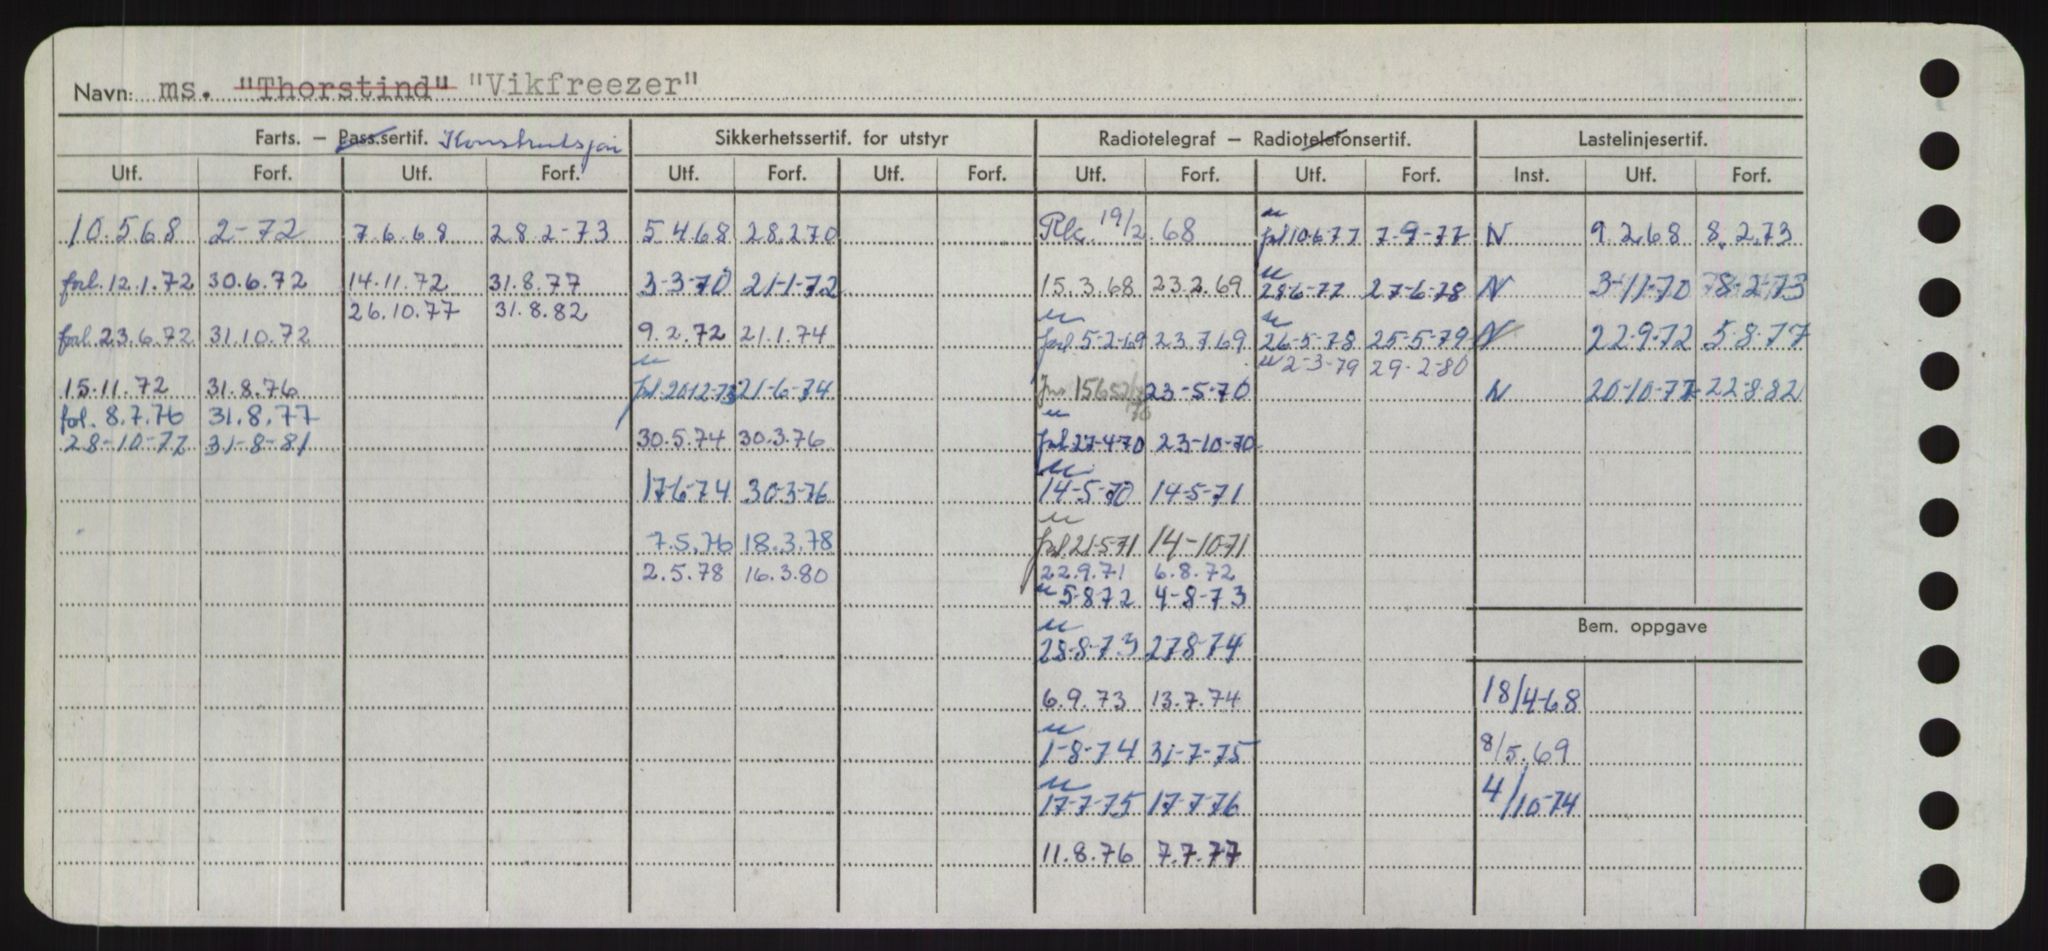 Navn: ms. "Thorstind" "Vikfreezer"
Farts. — Pass.sertif. Konstruksjon Sikkerhetssertif. for utstyr Radiotelegraf — Radiotelefonsertif. Lastelinjesertif.
Utf. Forf. Utf. Forf. Utf. Forf. Utf. Forf. Utf. Forf. Utf. Forf. Inst. Utf. Forf.
10.5.68 2-72 7.6.68 28.2-73 5.4.68 28.2.70 Rk. 19/2.68 forl 10-6-77 7-9-77 N 9.2.68 8.2.73
forl. 12.1.72 30.6.72 14.11.72 31.8.77 3-3-70 21-1-72 15.3.68 23.2.69 28-6-77 27-6-78 N 3-11-70 8-2-73
26.10.77 31.8.82
forl. 23.6.72 31.10.72 9.2.72 21.1.74 forl 5-2-69 23.7.69 26-5-78 25-5-79 N 22-9-72 5-8-77
2-3-79 29-2-80
15.11.72 31.8.76 forl. 20-12-73 21-6-74 23-5-70 N 20-10-77 22-8-82
forl. 8.7.76 31.8.77
28-10-77 31-8-81 30.5.74 30.3.76 forl 27-4-70 23-10-70
17-6-74 30-3-76 14-5-70 14-5-71
7.5.76 18.3.78 forl 21-5-71 14-10-71
2.5.78 16.3.80 22.9.71 6.8.72
5-8-72 4-8-73
Bem. oppgave
28-8-73 27-8-74
6.9.73 13.7.74 18/4-68
1-8-74 31-7-75 8/5.69
17-7-75 17-7-76 4/10-74
11.8.76 7.7.77